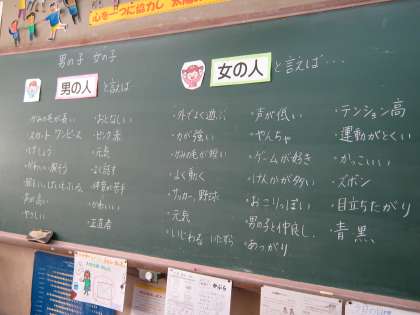 心を一つに協力し
男の子 女の子
男の人 と言えば
・かみの毛が長い
・スカート ワンピース
・けしょう
・かわいい服そう
・声が高い
・やさしい
・おとなしい
・ピンク 赤
・元気
・よく話す
・体育が苦手
・かわいい
・正直者
女の人 と言えば…
・外でよく遊ぶ
・力が強い
・かみの毛が短い
・よく動く
・サッカー、野球
・元気
・いじわる いたずら
・声が低い
・やんちゃ
・ゲームが好き
・けんかが多い
・おこりっぽい
・男の子と仲良し
・あっさり
・テンション高
・運動がとくい
・かっこいい
・ズボン
・目立ちたがり
・青 黒